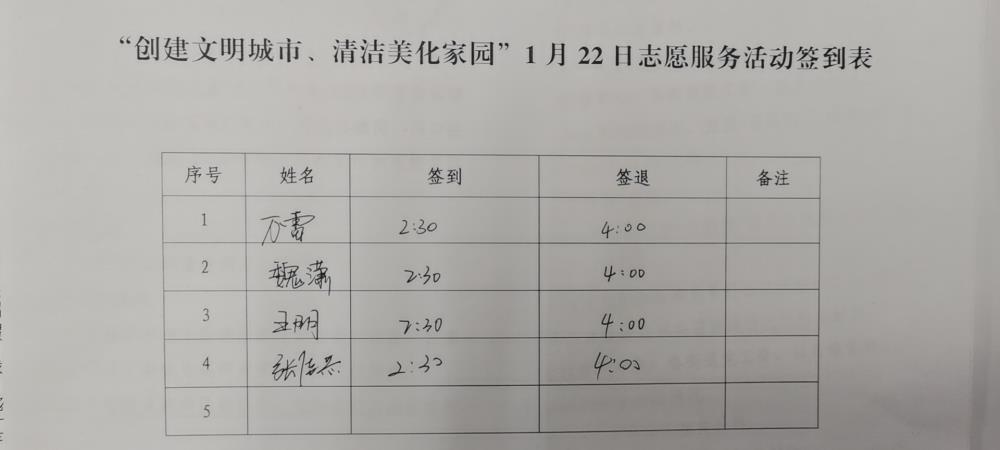 “创建文明城市、清洁美化家园”1月22日志愿服务活动签到表
序号 姓名 签到 签退 备注
1 万雷 2:30 4:00
2 魏潇 2:30 4:00
3 王明 2:30 4:00
4 2:30 4:00
5